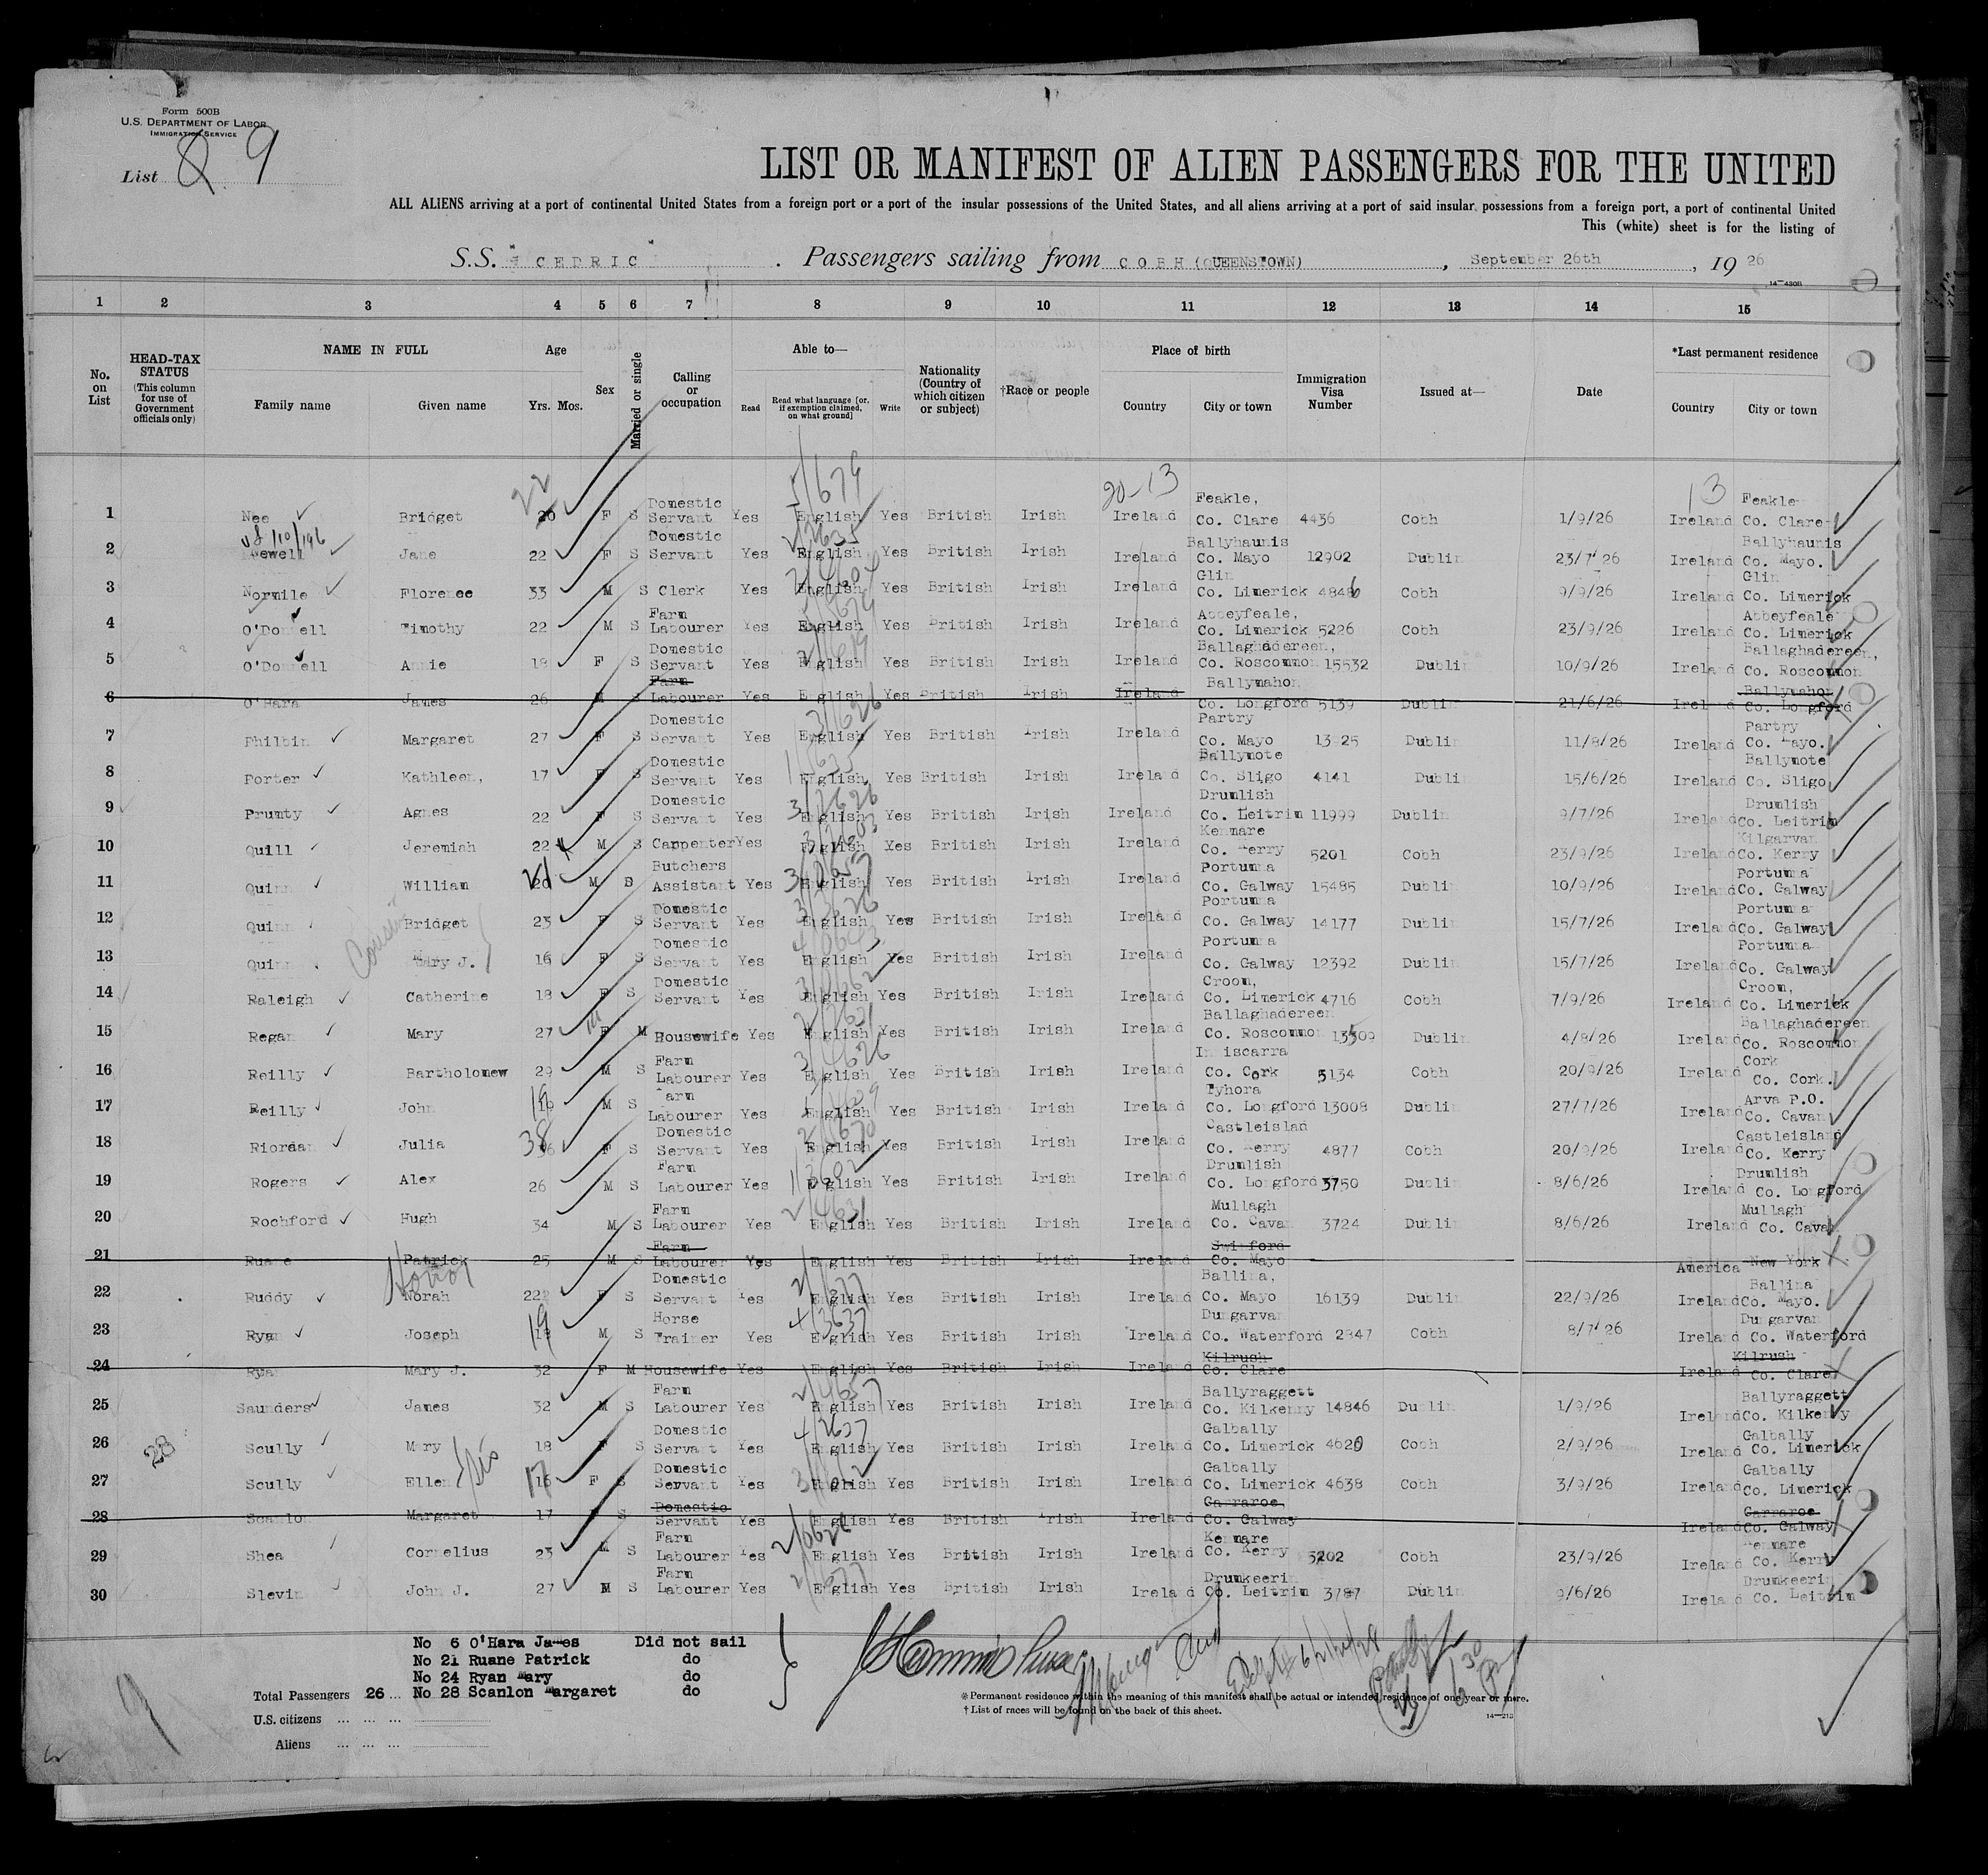 Form 500B
U.S. DEPARTMENT OF LABOR
IMMIGRATION SERVICE
List 8 9
LIST OR MANIFEST OF ALIEN PASSENGERS FOR THE UNITED
ALL ALIENS arriving at a port of continental United States from a foreign port or a port of the insular possessions of the United States, and all aliens arriving at a port of said insular possessions from a foreign port, a port of continental United
This (white) sheet is for the listing of
S.S. " CEDRIC " . Passengers sailing from COBH (QUEENSTOWN) , September 26th , 19 26
14—430B
1 2 3 4 5 6 7 8 9 10 11 12 13 14 15
No. on List
HEAD-TAX STATUS (This column for use of Government officials only)
NAME IN FULL
Family name Given name
Age
Yrs. Mos.
Sex
Married or single
Calling or occupation
Able to—
Read Read what language [or, if exemption claimed, on what ground] Write
Nationality (Country of which citizen or subject)
†Race or people
Place of birth
Country City or town
Immigration Visa Number
Issued at—
Date
*Last permanent residence
Country City or town
22 5/679 20-13 13
1 Nee Bridget 20 F S Domestic Servant Yes English Yes British Irish Ireland Feakle, Co. Clare 4436 Cobh 1/9/26 Ireland Feakle Co. Clare
2 Newell Jane 22 F S Domestic Servant Yes English Yes British Irish Ireland Ballyhaunis Co. Mayo 12902 Dublin 23/7/26 Ireland Ballyhaunis Co. Mayo.
3 Normile Florence 33 M S Clerk Yes English Yes British Irish Ireland Glin Co. Limerick 4846 Cobh 9/9/26 Ireland Glin Co. Limerick
4 O'Donnell Timothy 22 M S Farm Labourer Yes English Yes British Irish Ireland Abbeyfeale, Co. Limerick 5226 Cobh 23/9/26 Ireland Abbeyfeale Co. Limerick
5 O'Donnell Annie 18 F S Domestic Servant Yes English Yes British Irish Ireland Ballaghadereen, Co. Roscommon 15532 Dublin 10/9/26 Ireland Ballaghadereen, Co. Roscommon
6 O'Hara James 26 M S Farm Labourer Yes English Yes British Irish Ireland Ballymahon Co. Longford 5139 Dublin 21/6/26 Ireland Ballymahon Co. Longford
7 Philbin Margaret 27 F S Domestic Servant Yes English Yes British Irish Ireland Partry Co. Mayo 13925 Dublin 11/8/26 Ireland Partry Co. Mayo.
8 Porter Kathleen, 17 F S Domestic Servant Yes English Yes British Irish Ireland Ballymote Co. Sligo 4141 Dublin 15/6/26 Ireland Ballymote Co. Sligo
9 Prumty Agnes 22 F S Domestic Servant Yes English Yes British Irish Ireland Drumlish Co. Leitrim 11999 Dublin 9/7/26 Ireland Drumlish Co. Leitrim
10 Quill Jeremiah 22 M S Carpenter Yes English Yes British Irish Ireland Kenmare Co. Kerry 5201 Cobh 23/9/26 Ireland Kilgarvan Co. Kerry
11 Quinn William 20 21 M S Butchers Assistant Yes English Yes British Irish Ireland Portumna Co. Galway 15485 Dublin 10/9/26 Ireland Portumna Co. Galway
12 Quinn Bridget 23 F S Domestic Servant Yes English Yes British Irish Ireland Portumna Co. Galway 14177 Dublin 15/7/26 Ireland Portumna Co. Galway
13 Quinn Mary J. 16 F S Domestic Servant Yes English Yes British Irish Ireland Portumna Co. Galway 12392 Dublin 15/7/26 Ireland Portumna Co. Galway
14 Raleigh Catherine 18 F S Domestic Servant Yes English Yes British Irish Ireland Croom, Co. Limerick 4716 Cobh 7/9/26 Ireland Croom, Co. Limerick
15 Regan Mary 27 F M Housewife Yes English Yes British Irish Ireland Ballaghadereen Co. Roscommon 13509 Dublin 4/8/26 Ireland Ballaghadereen Co. Roscommon
16 Reilly Bartholomew 29 M S Farm Labourer Yes English Yes British Irish Ireland Inniscarra Co. Cork 5134 Cobh 20/9/26 Ireland Cork Co. Cork.
17 Reilly John 19 M S Farm Labourer Yes English Yes British Irish Ireland Fyhora Co. Longford 13008 Dublin 27/7/26 Ireland Arva P.O. Co. Cavan
18 Riordan Julia 38 36 F S Domestic Servant Yes English Yes British Irish Ireland Castleislad Co. Kerry 4877 Cobh 20/9/26 Ireland Castleisland Co. Kerry
19 Rogers Alex 26 M S Farm Labourer Yes English Yes British Irish Ireland Drumlish Co. Longford 3750 Dublin 8/6/26 Ireland Drumlish Co. Longford
20 Rochford Hugh 34 M S Farm Labourer Yes English Yes British Irish Ireland Mullagh Co. Cavan 3724 Dublin 8/6/26 Ireland Mullagh Co. Cavan
21 Ruane Patrick 25 M S Farm Labourer Yes English Yes British Irish Ireland Swinford Co. Mayo America New York
22 Ruddy Norah 22 F S Domestic Servant Yes English Yes British Irish Ireland Ballina, Co. Mayo 16139 Dublin 22/9/26 Ireland Ballina Co. Mayo.
23 Ryan Joseph 19 M S Horse Trainer Yes English Yes British Irish Ireland Dungarvan Co. Waterford 2347 Cobh 8/7/26 Ireland Dungarvan Co. Waterford
24 Ryan Mary J. 32 F M Housewife Yes English Yes British Irish Ireland Kilrush Co. Clare Ireland Kilrush Co. Clare
25 Saunders James 32 M S Farm Labourer Yes English Yes British Irish Ireland Ballyraggett Co. Kilkenny 14846 Dublin 1/9/26 Ireland Ballyraggett Co. Kilkenny
26 Scully Mary 18 F S Domestic Servant Yes English Yes British Irish Ireland Galbally Co. Limerick 4620 Cobh 2/9/26 Ireland Galbally Co. Limerick
27 Scully Ellen 17 16 F S Domestic Servant Yes English Yes British Irish Ireland Galbally Co. Limerick 4638 Cobh 3/9/26 Ireland Galbally Co. Limerick
28 Scanlon Margaret 17 F S Domestic Servant Yes English Yes British Irish Ireland Garraroe, Co. Galway Ireland Garraroe Co. Galway
29 Shea Cornelius 23 M S Farm Labourer Yes English Yes British Irish Ireland Kenmare Co. Kerry 5202 Cobh 23/9/26 Ireland Kenmare Co. Kerry
30 Slevin John J. 27 M S Farm Labourer Yes English Yes British Irish Ireland Drumkeerin Co. Leitrim 3787 Dublin 9/6/26 Ireland Drumkeerin Co. Leitrim
No 6 O'Hara James Did not sail
No 21 Ruane Patrick do
No 24 Ryan Mary do
No 28 Scanlon Margaret do
Total Passengers 26
U.S. citizens
Aliens
* Permanent residence within the meaning of this manifest shall be actual or intended residence of one year or more.
† List of races will be found on the back of this sheet.
14—213